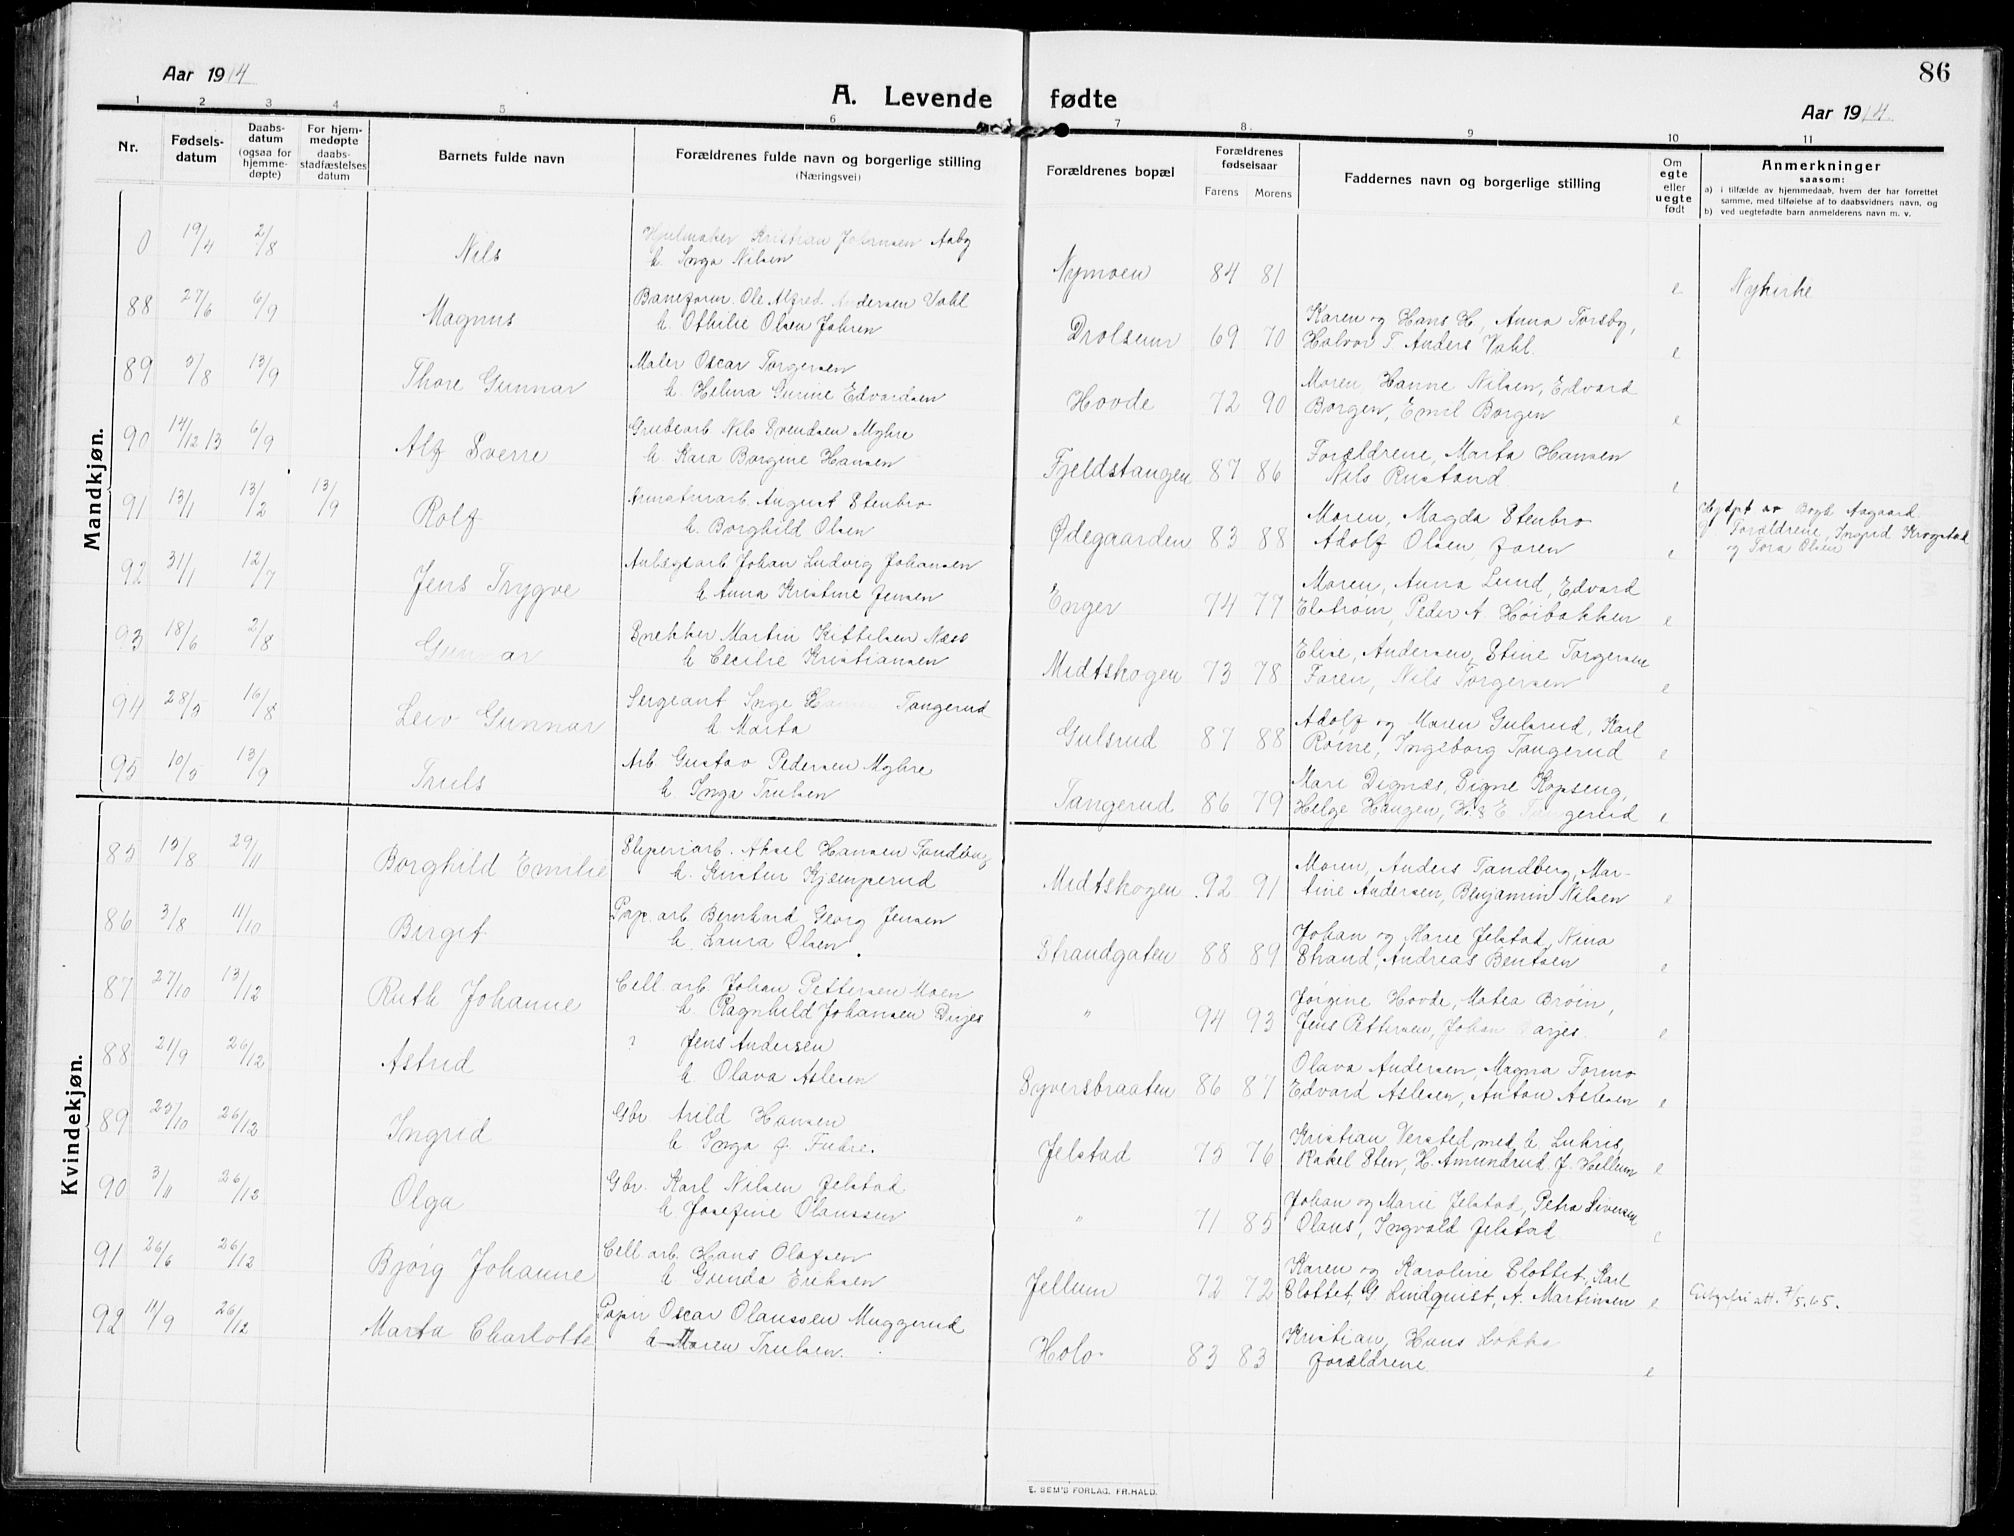 Aar 1914
A. Levende fødte
86
Aar 1914
1 2 3 4 5 6 7 8. 9 10 11
Nr.
Fødsels-
datum
Daabs-
datum
(ogsaa for
hjemme-
døpte)
For hjem-
medøpte
daabs-
stadfæstelses
datum
Barnets fulde navn
Forældrenes fulde navn og borgerlige stilling
(Næringsvei)
Forældrenes bopæl
Forældrenes
fødselsaar
Farens Morens
Faddernes navn og borgerlige stilling
Om
egte
eller
uegte
født
Anmerkninger
saasom:
a) i tilfælde av hjemmedaab, hvem der har forrettet
samme, med tilføielse af to daabsvidners navn, og
b) ved uegtefødte barn anmelderens navn m. v.
Mandkjøn.
0 19/4 2/8 Nils Hjulmaker Kristian Johansen Aaby
h. Inga Nilsen
Nymoen 84 81 e Nykirke
88 27/6 6/9 Magnus Baneform. Ole Alfred Andersen Vahl
h. Othilie Olsen Jahren
Drolsum 69 70 Karen og Hans H, Anna Forsby,
Halvor T. Anders Vahl. e
89 5/8 13/9 Thore Gunnar Maler Oscar Torgersen
h. Helma Gurine Edvardsen
Hovde 72 90 Moren, Hanne Nilsen, Edvard
Borgen, Emil Borgen e
90 14/12 13 6/9 Alf Sverre Grubearb Nils Svendsen Myhre
h Kara Borgine Hansen
Fjeldstangen 87 86 Forældrene, Marta Hansen
Nils Rustand e
91 13/1 13/2 13/9 Rolf Armaturarb. August Stenbro
h. Borghild Olsen
Ødegaarden 83 88 Moren, Magda Stenbro
Adolf Olsen, faren e
Hjdpt av Aagaard
Forældrene, Ingrid Krogstad
og Tora Olsen
92 31/1 12/7 Jens Trygve Anlægsarb Johan Ludvig Johansen
h Anna Kristine Jensen
Enger 74 77 Moren, Anna Lund, Edvard
Elstrøm, Peder A. Høibakken e
93 18/6 2/8 Gunnar Snekker Martin Kittelsen Næss
h Cecilie Kristiansen
Midtskogen 73 78 Elise, Andersen, Stine Torgersen
Faren, Nils Torgersen e
94 28/5 16/8 Leiv Gunnar Sergeant Inge Tangerud
h Marta
Gulsrud 87 88 Adolf og Maren Gulsrud, Karl
Roine, Ingeborg Tangerud e
95 10/5 13/9 Truls Arb. Gustav Pedersen Myhre
h. Inga Trulsen
Tangerud 86 79 Mari Dignæs, Signe Kopseng,
Helge Haugen, H. & E Tangerud e
Kvindekjøn.
85 15/8 29/11 Borghild Emilie Sliperiarb. Aksel Hansen Tandberg
h. Kirsten Kjemperud
Midtskogen 92 91 Moren, Anders Tandberg, Mar-
tine Andersen, Benjamin Nilsen e
86 3/8 11/10 Birgit Pap. arb Bernhard Georg Jensen
h. Laura Olsen.
Strandgaten 88 89 Johan og Marie Jelstad, Nina
Strand, Andreas Bentsen e
87 27/10 13/12 Ruth Johanne Cell. arb Johan Pettersen Moen
h. Ragnhild Johansen Dajes
" 94 93 Jørgine Hovde, Matea Broin,
Jens Pettersen, Johan Darjes. e
88 21/9 26/12 Astrid ? Jens Andersen
h Olava Aslesen
Syversbraaten 86 87 Olava Andersen, Magna Formo
Edvard Aslesen, Anton Aslesen e
89 25/10 26/12 Ingrid Gbr Arild Hansen
h Inga f Fuhre.
Jelstad 75 76 Kristian, Versted med h. Lukris,
Rakel Sten, H. Amundrud. J. Hellum e
90 3/11 26/12 Olga Gbr. Karl Nilsen Jelstad
h Josefine Olaussen
" 71 85 Johan og Marie Jelstad, Petra Siversen
Olaus, Ingvald Jelstad e
91 26/6 26/12 Bjørg Johanne Cell. arb. Hans Olafsen
h Gunda Eriksen
Jellum 72 72 Karen og Karoline Slottet, Karl
Slottet, G Lindquist, A. Martinsen e att. 7/5.65.
92 11/9 26/12 Marta Charlotte Papir Oscar Olaussen Muggerud
h Maren Trulsen.
Holo 83 83 Kristian, Hans Løkke
forældrene e
E. SEM'S FORLAG. FR.HALD.